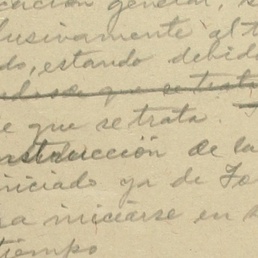 cación general, s
lusivamente al t
do, estando debido
se que se trat
e que se trata.
nstrucción de la
niciado ya de Fo
sa iniciarse en
tiempo